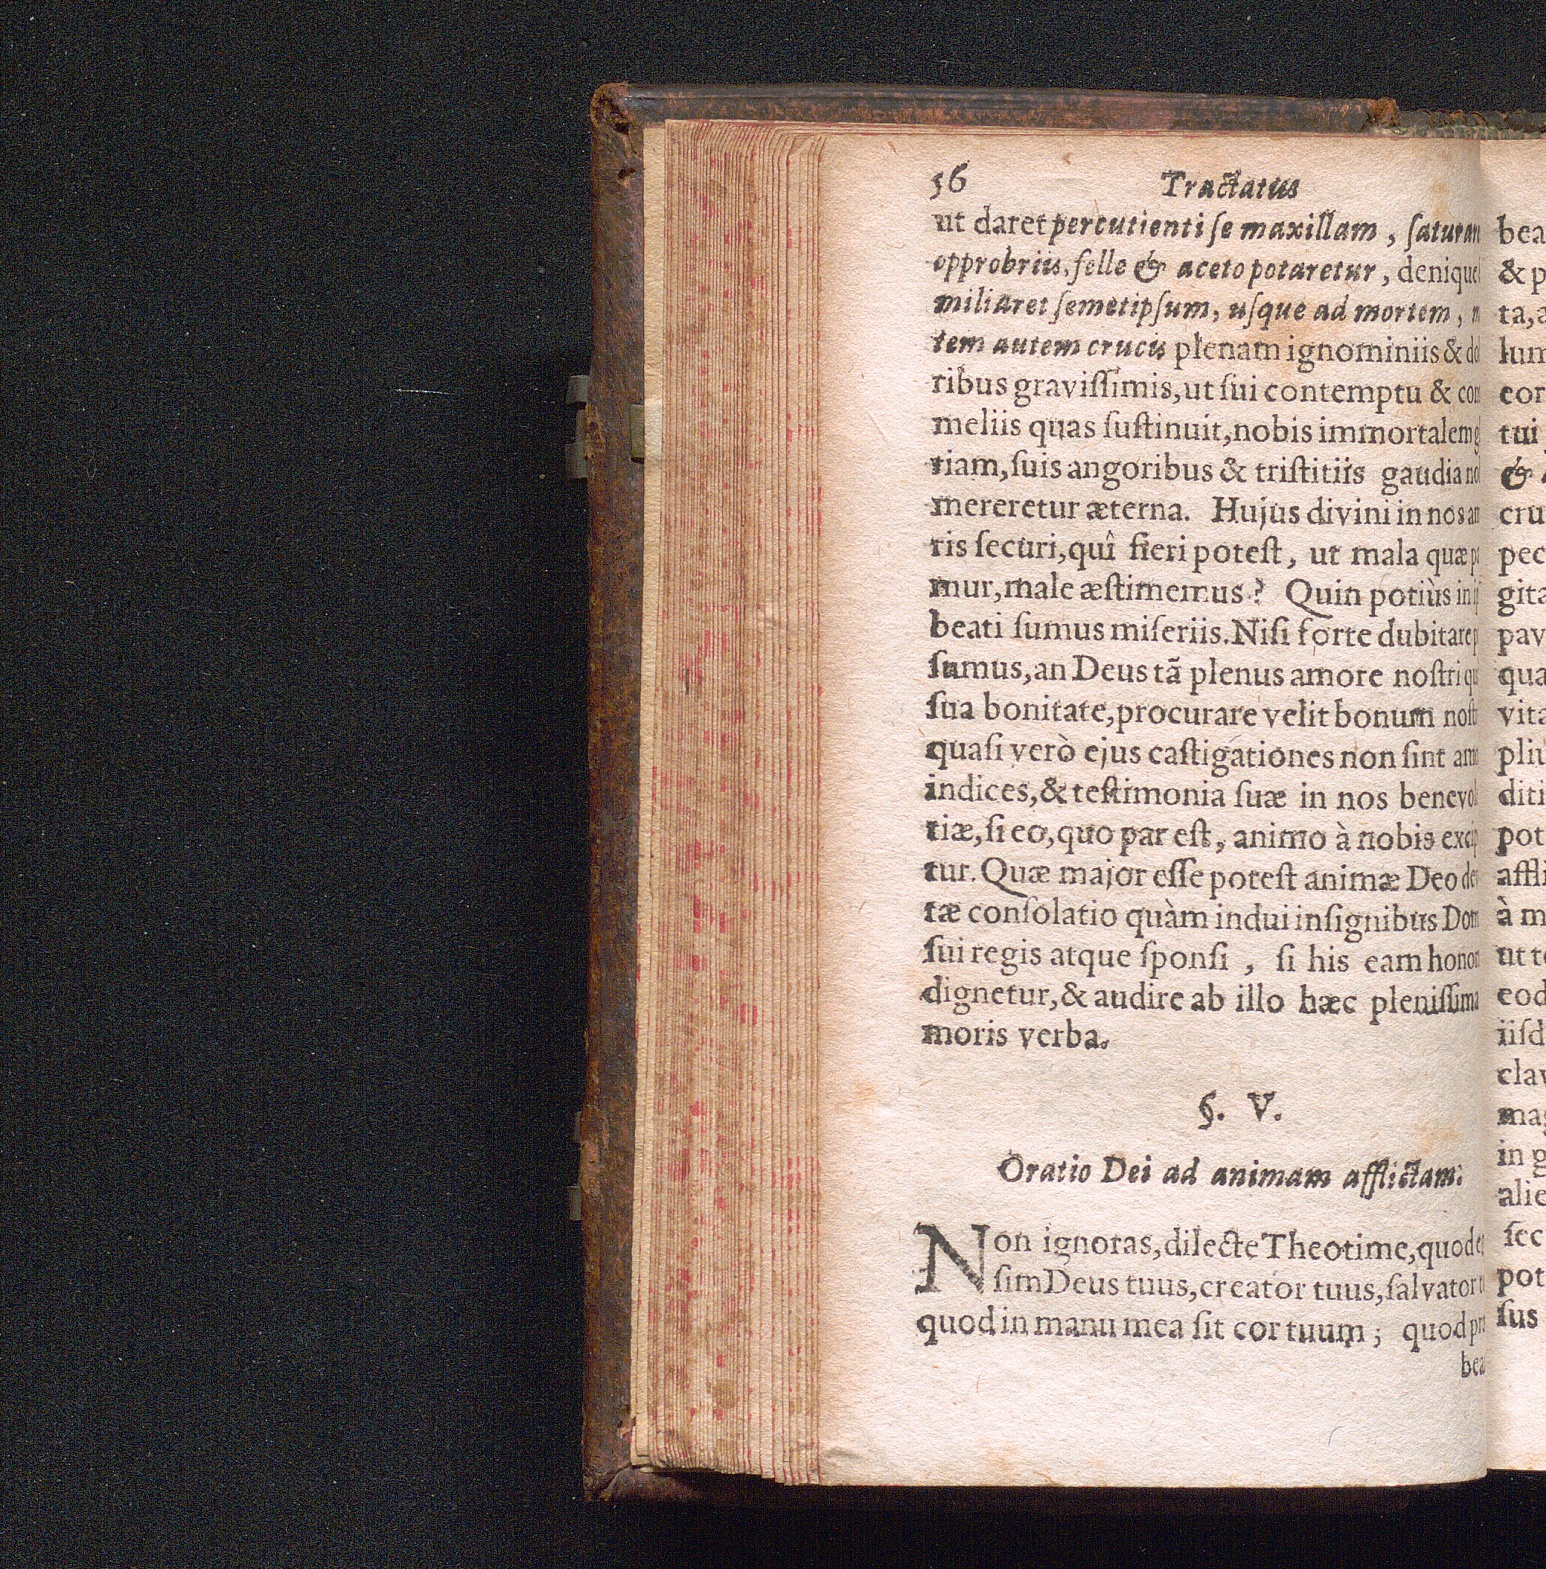 56 Tractatus
ut daret percutienti se maxillam, saturan
opprobriis, felle & aceto potaretur, denique
miliaret semetipsum, usque ad mortem,
tem autem crucis plenam ignominiis & do
ribus gravissimis, ut sui contemptu & con
meliis quas sustinuit, nobis immortalem g
riam, suis angoribus & tristitiis gaudia no
mereretur æterna. Hujus divini in nos am
ris securi, quî fieri potest, ut mala quæ p
mur, male æstimemus? Quin potiùs in i
beati sumus miseriis. Nisi forte dubitare p
sumus, an Deus tã plenus amore nostri qu
sua bonitate, procurare velit bonum nost
quasi verò ejus castigationes non sint amo
indices, & testimonia suæ in nos benevol
tiæ, si eo, quo par est, animo à nobis excip
tur. Quæ major esse potest animæ Deo de
tæ consolatio quàm indui insignibus Dom
sui regis atque sponsi, si his eam honor
dignetur, & audire ab illo hæc plenissima
moris verba.
§. V.
Oratio Dei ad animam afflictam.
Non ignoras, dilecte Theotime, quod e
sim Deus tuus, creator tuus, salvator t
quod in manu mea sit cor tuum; quod pr
bea
bea
& p
ta, a
lum
cor
tui
&
cru
pec
gita
pav
qua
vita
pliù
diti
pot
affli
à m
ut t
eod
iisd
clav
mag
in g
alie
sec
pot
sus